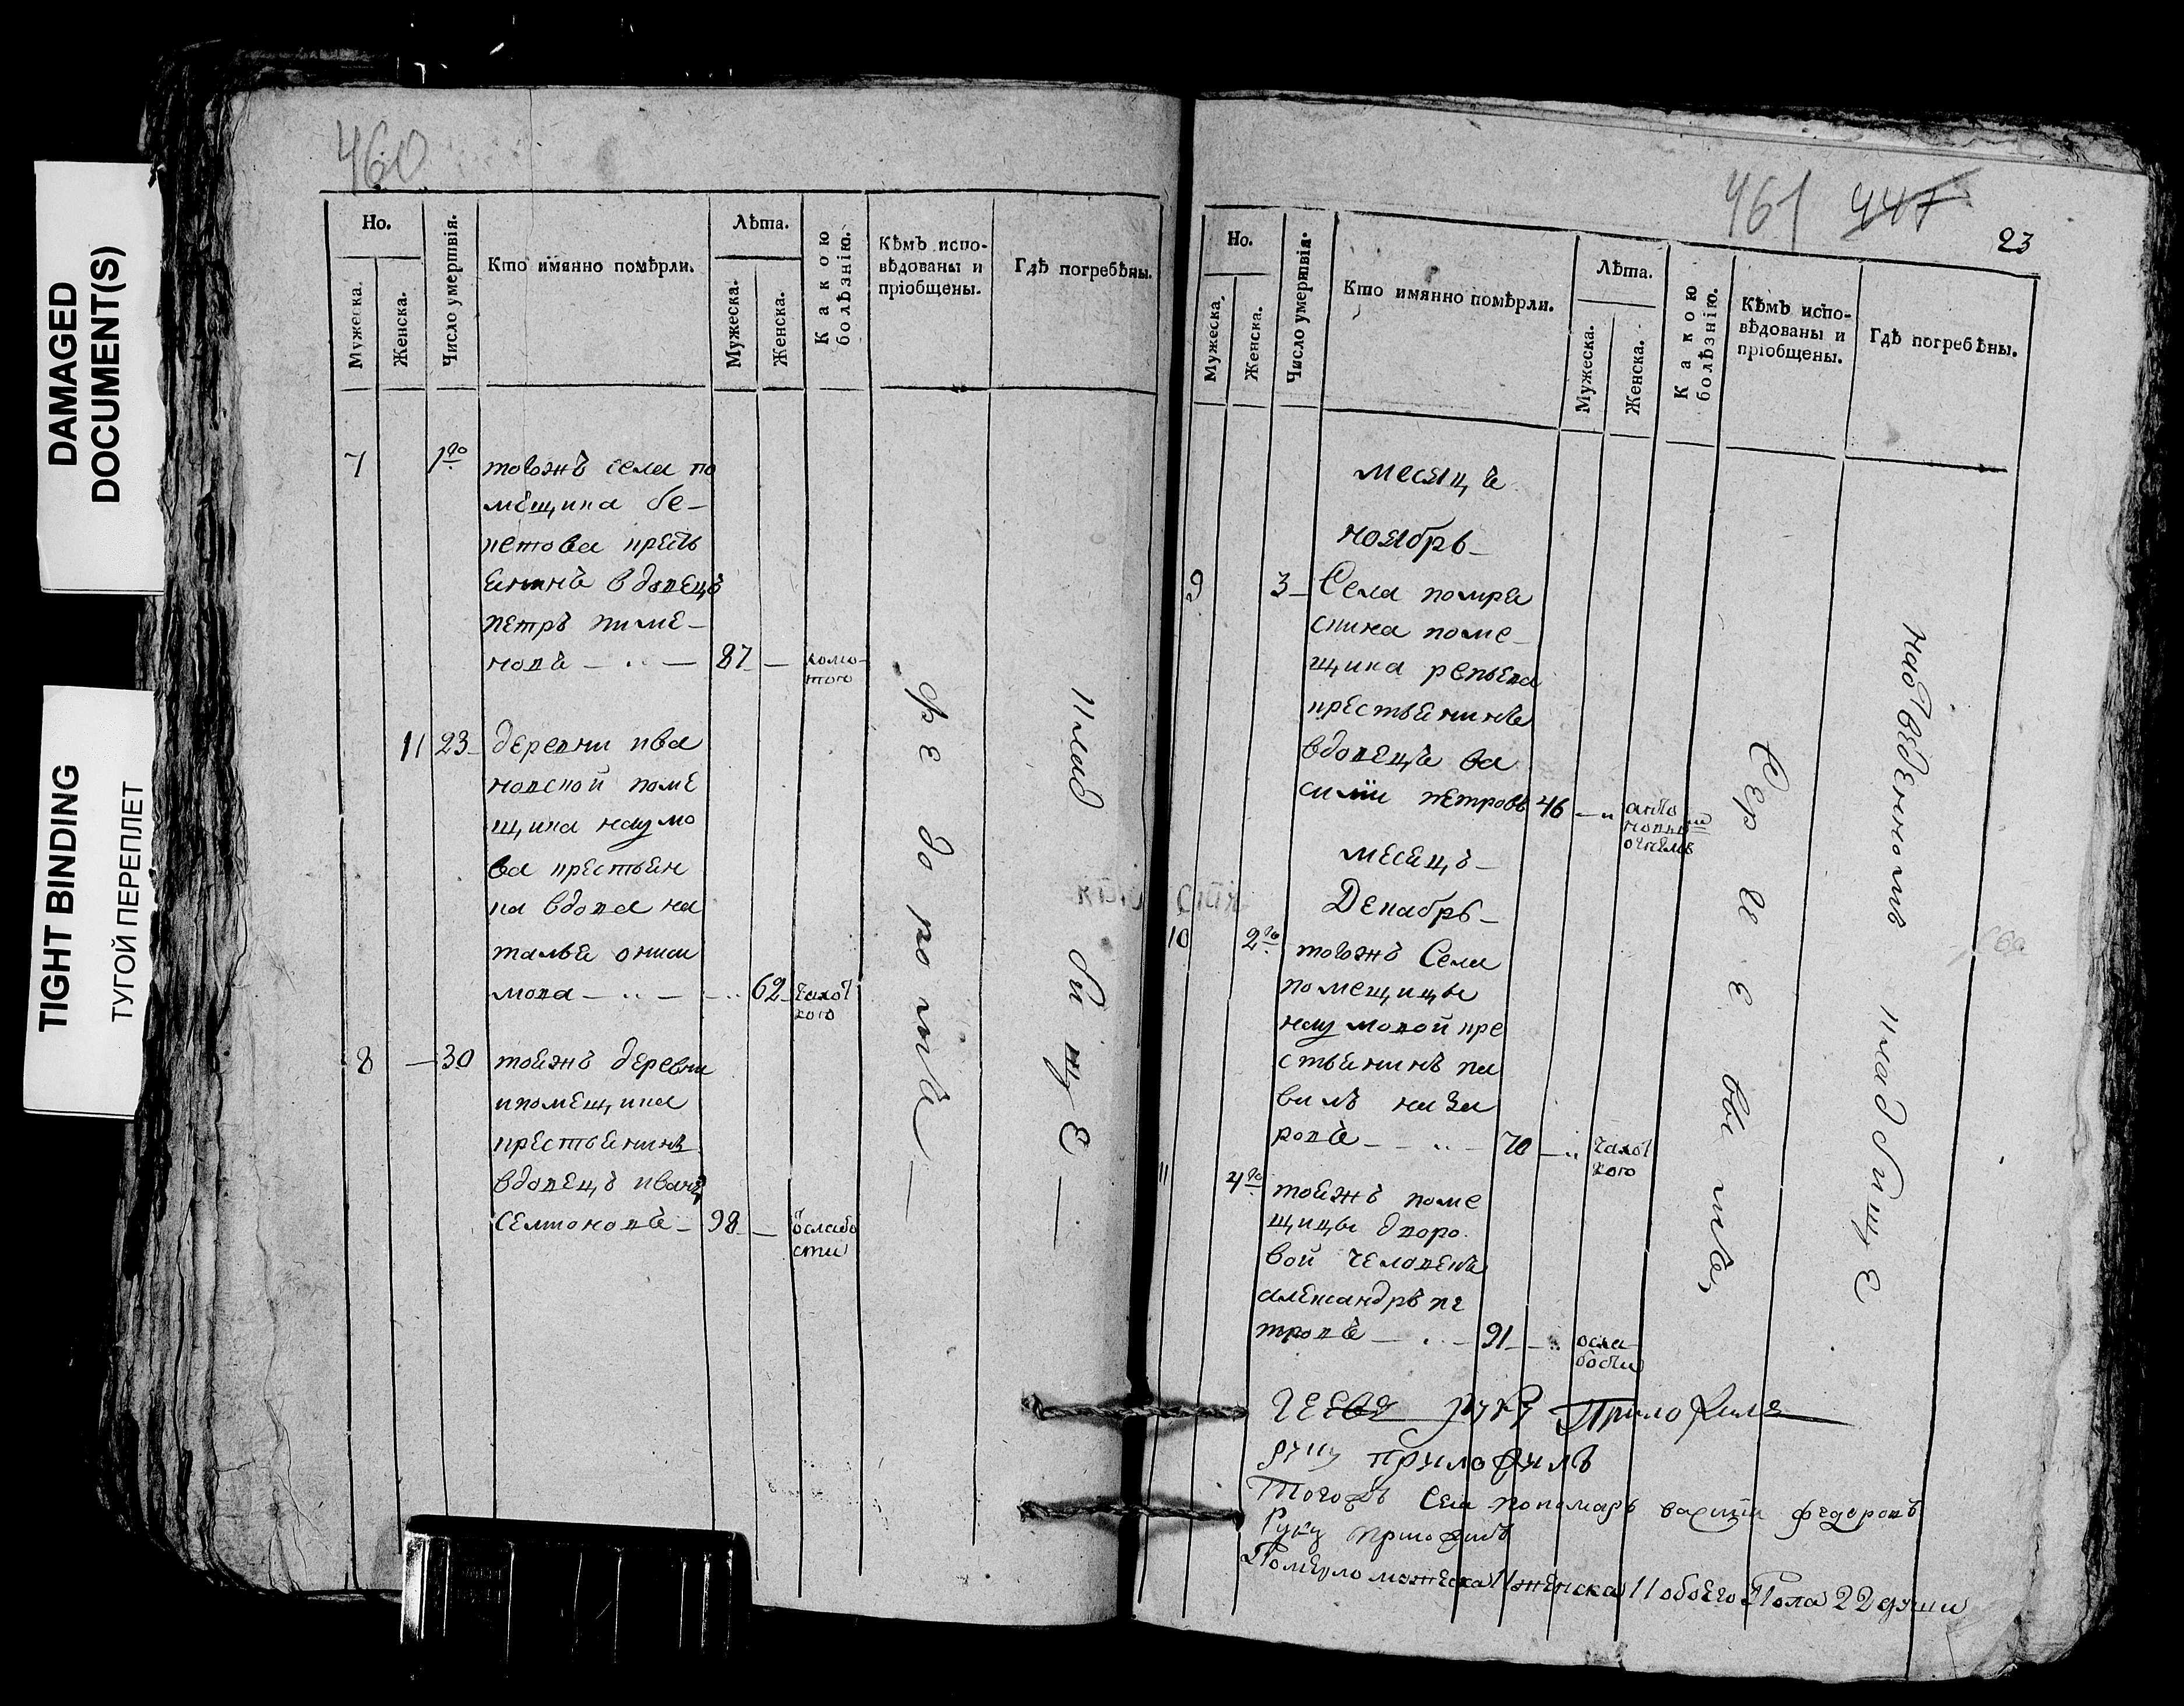 DAMAGED
DOCUMENT(S)
TIGHT BINDING
ТУГОЙ ПЕРЕПЛЕТ
460
Но.
Мужеска.
Женска.
Число умертвія.
Кто имянно помѣрли.
Лѣта.
Мужеска.
Женска.
Какою болѣзнію.
Кѣмъ испо-
вѣдованы и
пріобщены.
Гдѣ погребѣны.
7 1го тогожъ села по
мещика бе-
кетова крестъ
янинъ вдовецъ
петръ пиме-
новъ 87
11 23 деревни ива
новской поме
щика наумо
ва крестьян
ка вдова на
талья ониси
мова 62 чахот
кого
8 30 тоежъ деревни
ипомещика
крестьянинъ
вдовецъ иванъ
семионовъ 98 ослабо
сти
461 447
23
Но.
Мужеска.
Женска.
Число умертвія.
Кто имянно помѣрли.
Лѣта.
Мужеска.
Женска.
Какою болѣзнію.
Кѣмъ испо-
вѣдованы и
пріобщены.
Гдѣ погребѣны.
месяцъ
ноябрь
9 3 Села покра
поме-
щика репьева
крестьянинъ
вдовецъ ва
силии петровъ 46
огнемъ
месецъ
Декабрь
10 2го тогожъ Села
помещицы
наумовой кре
стьянинъ па
велъ наза
ровъ 70 чахот
кого
11 4го тоежъ поме
щицы дворо
вой человекъ
александръ пе
тровъ 91 осла
бости
Сергеевымъ
кладбище
руку Приложилъ
руку приложилъ
Тогожъ Села пономарь василии федоровъ
Руку приложилъ
Померло мужеска 11 женска 11 обоего Пола 22 души